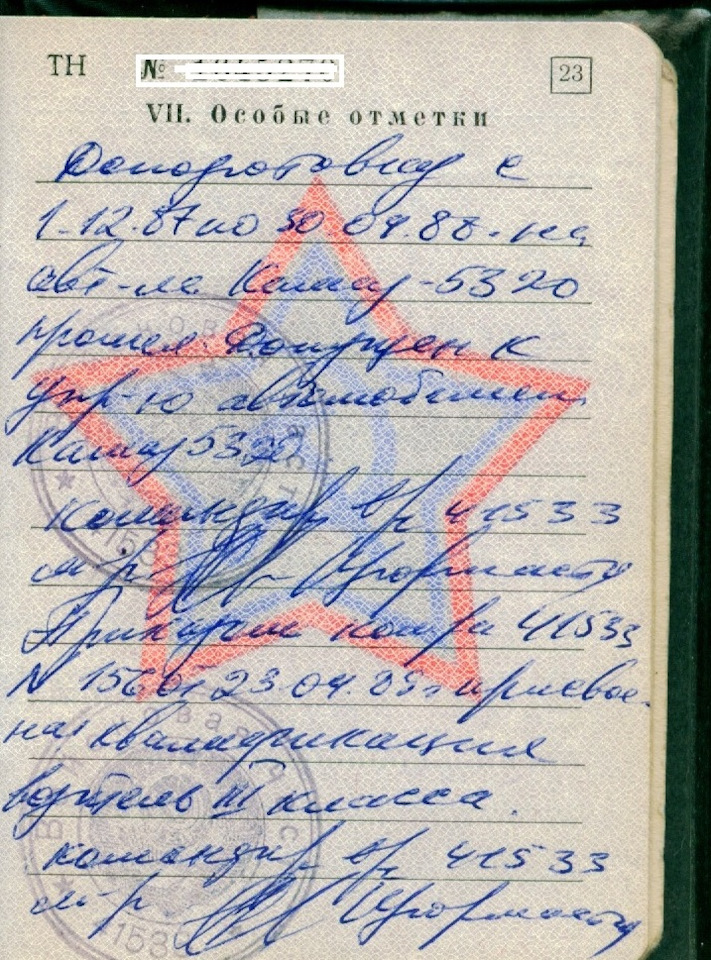 ТН №
23
VII. Особые отметки
Доподготовку с
1.12.87 по 30 04.88. на
авт-ле Камаз-5320
прошел. Допущен к
упр-ю автомобилем
Камаз 5320
Командир в/ч 41533
м-р
Приказом ком-ра 41533
N 156 от 23.04.89г присвое-
на квалификация
водитель III класса.
командир в/ч 41533
м-р